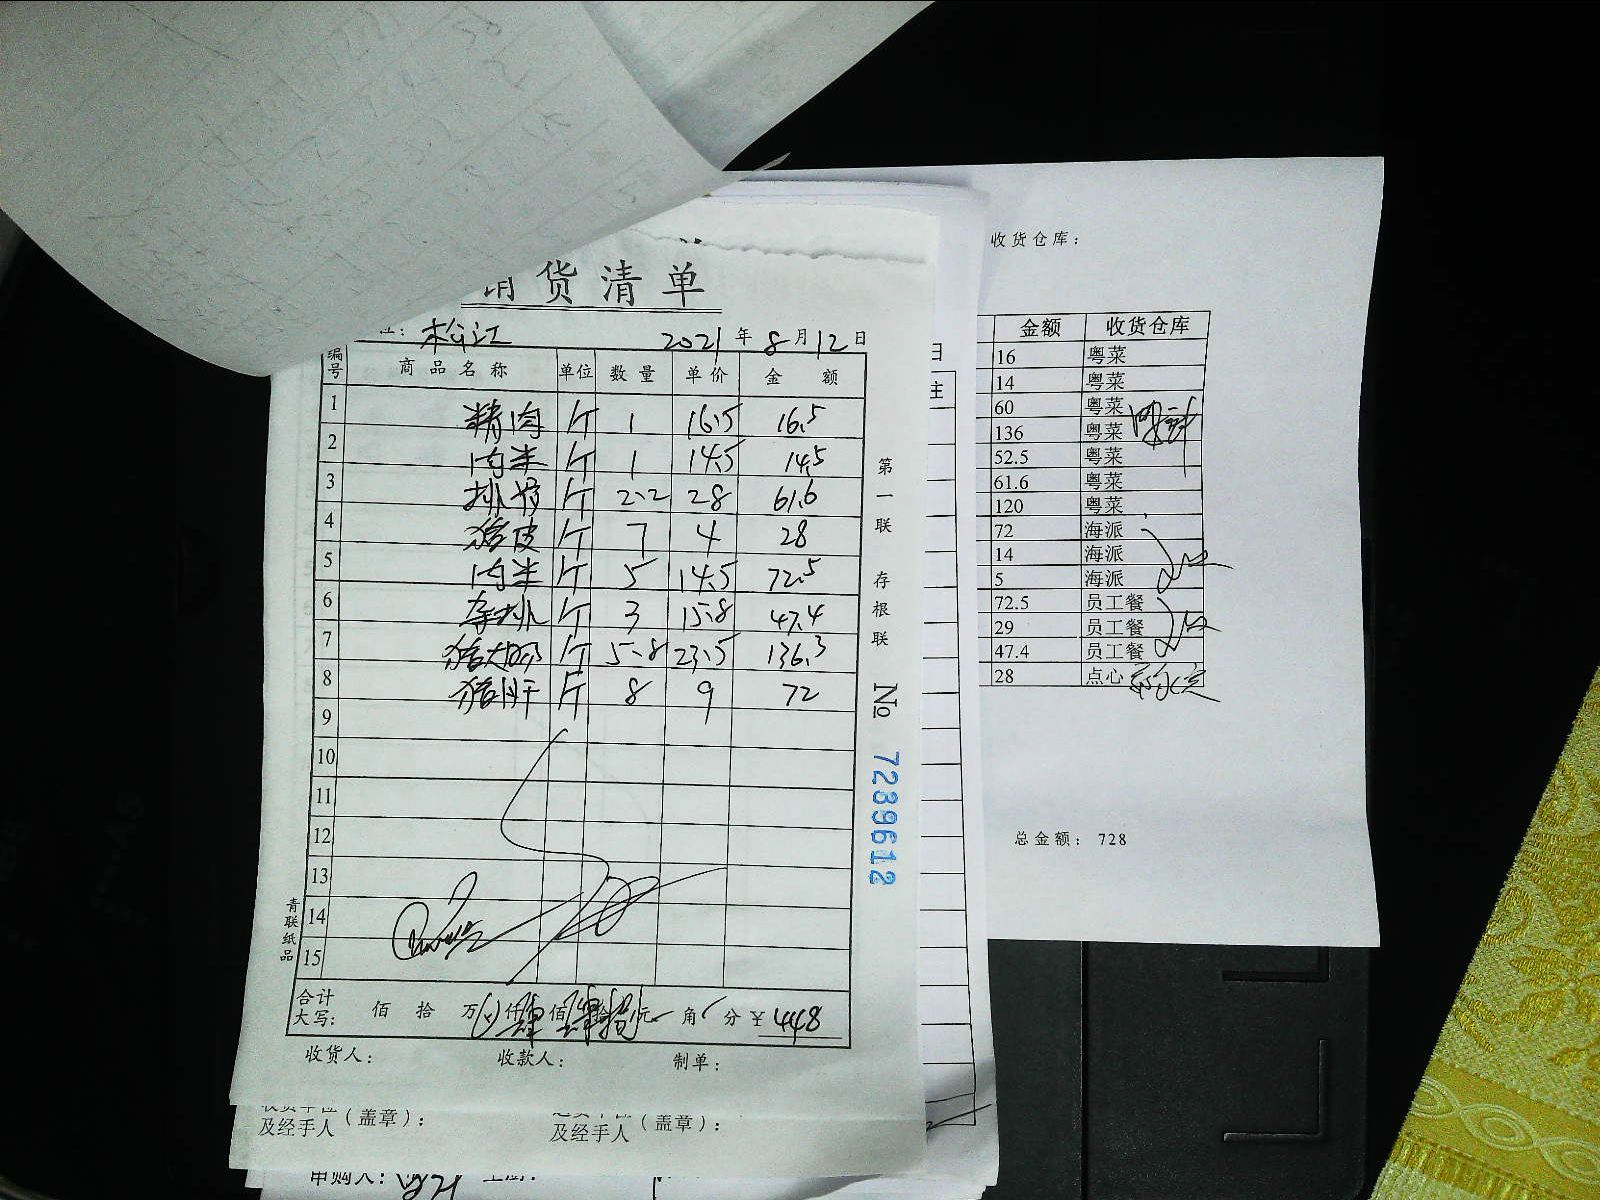 货清单
松江 2021年8月12日
编号 商品名称 单位 数量 单价 金额
1 精肉 斤 1 16.5 16.5
2 肉米 斤 1 14.5 14.5
3 排骨 斤 2.2 28 61.6
4 猪皮 斤 7 4 28
5 肉米 斤 5 14.5 72.5
6 杂排 斤 3 15.8 47.4
7 斤 5.8 23.5 136.3
8 猪肝 斤 8 9 72
9
10
11
12
13
14
15
合计大写: 佰 拾 万 仟 佰 元 角 分 ¥ 448
收货人: 收款人: 制单:
第一联 存根联 № 7289612
青联纸品
及经手人 (盖章): 及经手人 (盖章):
申购人:
日
注
收货仓库:
金额 收货仓库
16 粤菜
14 粤菜
60 粤菜
136 粤菜
52.5 粤菜
61.6 粤菜
120 粤菜
72 海派
14 海派
5 海派
72.5 员工餐
29 员工餐
47.4 员工餐
28 点心
总金额: 728